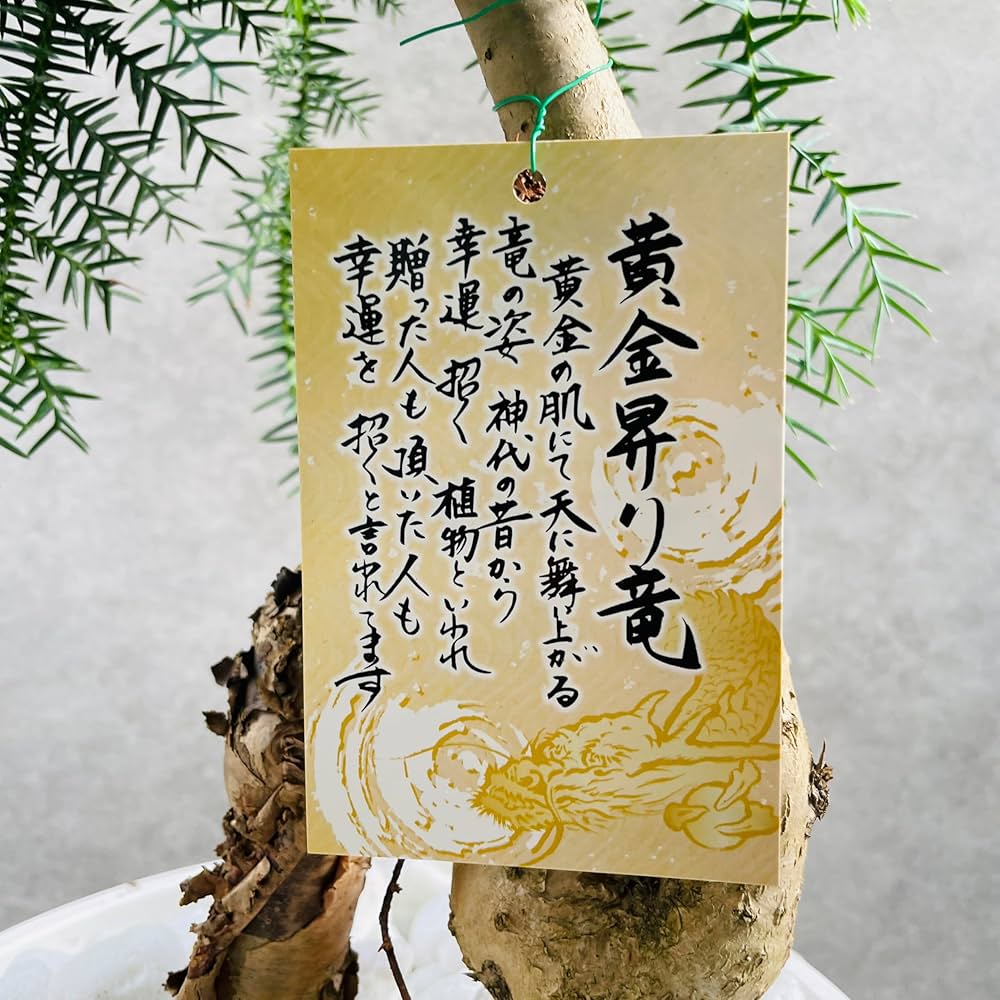 黄金昇り竜
黄金の肌にて天に舞上がる
竜の姿 神代の昔から
幸運 招く 植物といわれ
贈った人も頂いた人も
幸運を 招くと言われてます